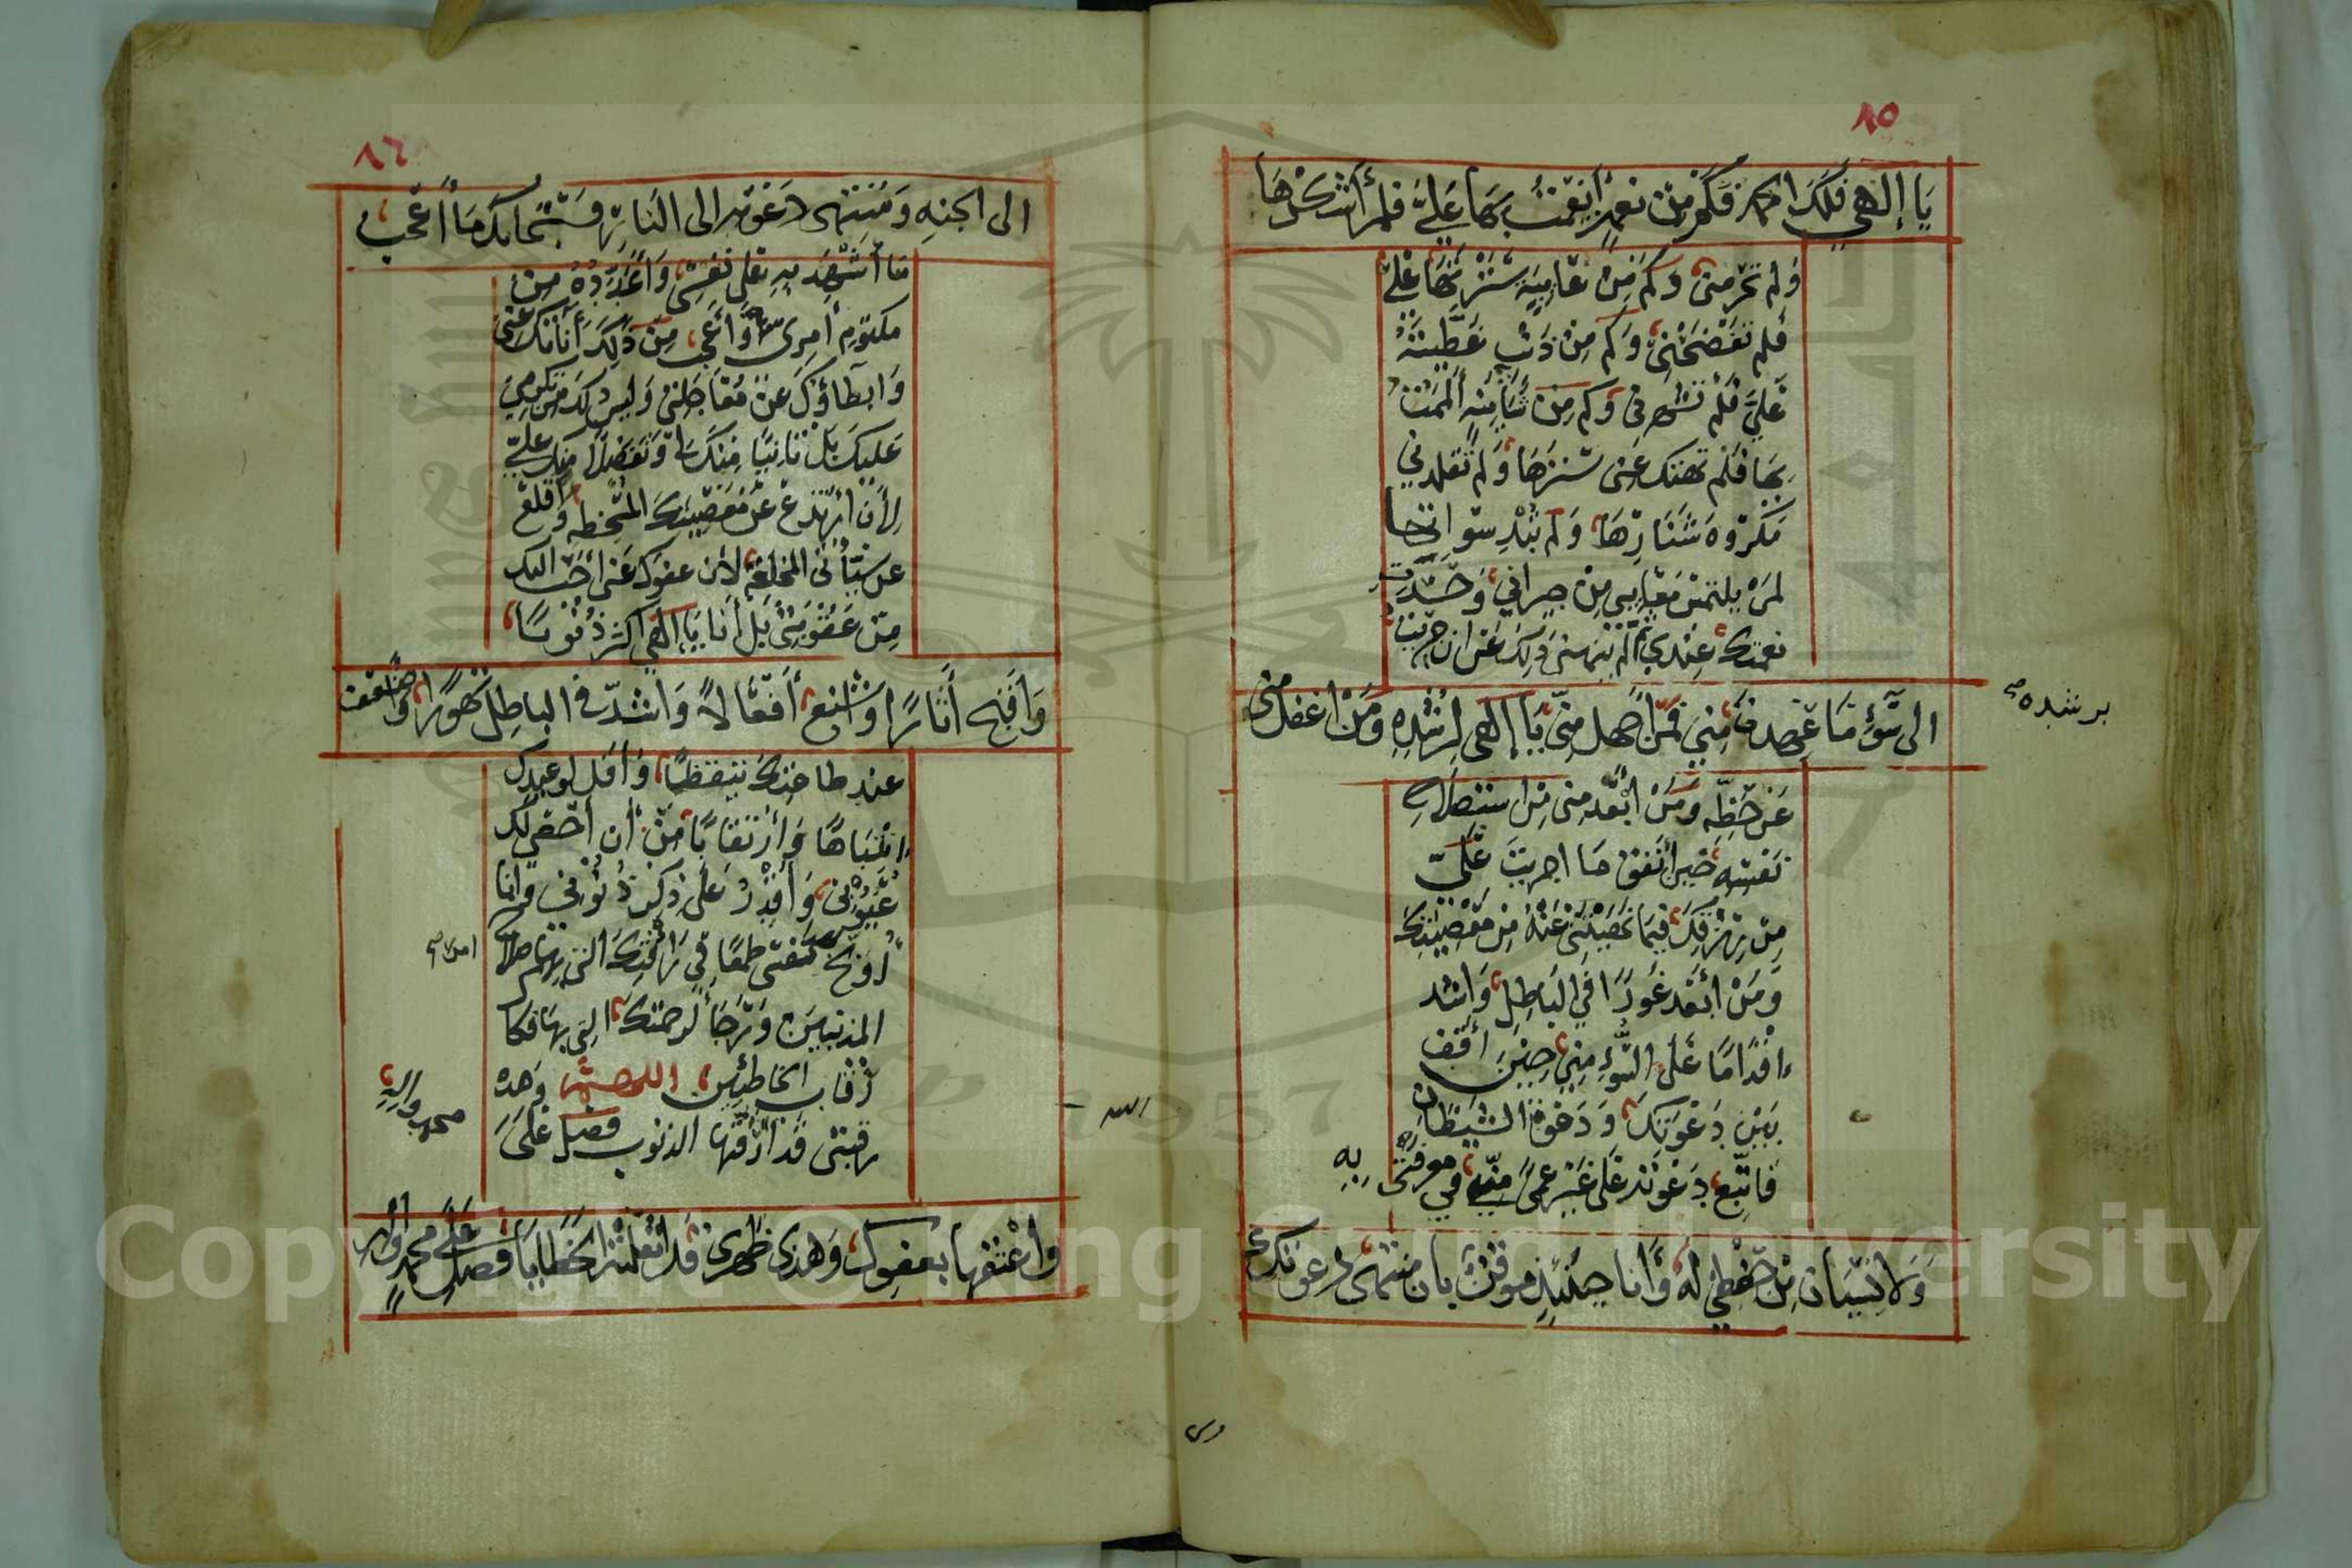 ٨٥
يَا إِلَهِي فَلَكَ الحمد فكم مِن نعمةٍ أنعمتَ بها عَلَيَّ فلم أشكُرْهَا
وَلم تحرمني وكم مِن عايبة سَتَرتَها عليَّ
فلم تفضحني وكم مِن ذنب غطيته
عليَّ فلم تشهرني وكم من شايبه ألممت
بها فلم تهتك عني سترها ولم تقلدني
مكروه شنارها ولم تبد سواتها
لمن يلتمس معايبي من جيراني وحسدة
نعمتك عندي ثم لم ينهني ذلك عن ان جريت
الى سوء ما عهدت مني فمن اجهل مني يا إلهي لرشده ومن اغفل مني
برشده
عن حظه ومن ابعد مني من استصلاح
نفسه حين أنفق ما اجريت عليّ
من رزقك فيما نهيتني عنه من معصيتك
ومن ابعد غورا في الباطل واشد
اقداما على السوء مني حين أقف
بين دعوتك ودعوة الشيطان
فاتبع دعوته على غير عمى مني في معرفتي به
ولا نسيان من حفظي له وأنا حينئذ موقن بان منتهى دعوتك
٨٦
الى الجنه ومنتهى دعوته الى النار سبحانك ما أعجب
ما أشهد به على نفسي وأعدده من
مكتوم أمري وأعجب من ذلك أناتك عني
وابطاؤك عن معاجلتي وليس ذلك من كرمي
عليك بل تانيا منك لي وتفضلا منك عليّ
لأن أرتدع عن معصيتك المسخطه وأقلع
عن سيأتي المخلقة لأن عفوك عني أحب اليك
من عقوبتي بل أنا يا إلهي اكثر ذنوبا
وأقبح أثارًا وأشنع أفعالا وأشد في الباطل تهورا وأضعف
عند طاعتك تيقظا وأقل لوعيدك
انتباها وارتقابا من أن أحصي لك
عيوبي وأقدر على ذكر ذنوبي وانما
أوبخ بهذا نفسي طمعا في رأفتك التي بها صلاح
المذنبين ورجاء لرحمتك التي بها فكاك
رقاب الخاطئين اللهم وهذه
رقبتي قد أرقتها الذنوب فصل على
محمد واله
وأعتقها بعفوك وهذى ظهري قد أثقلته الخطايا فصل على محمد وأله